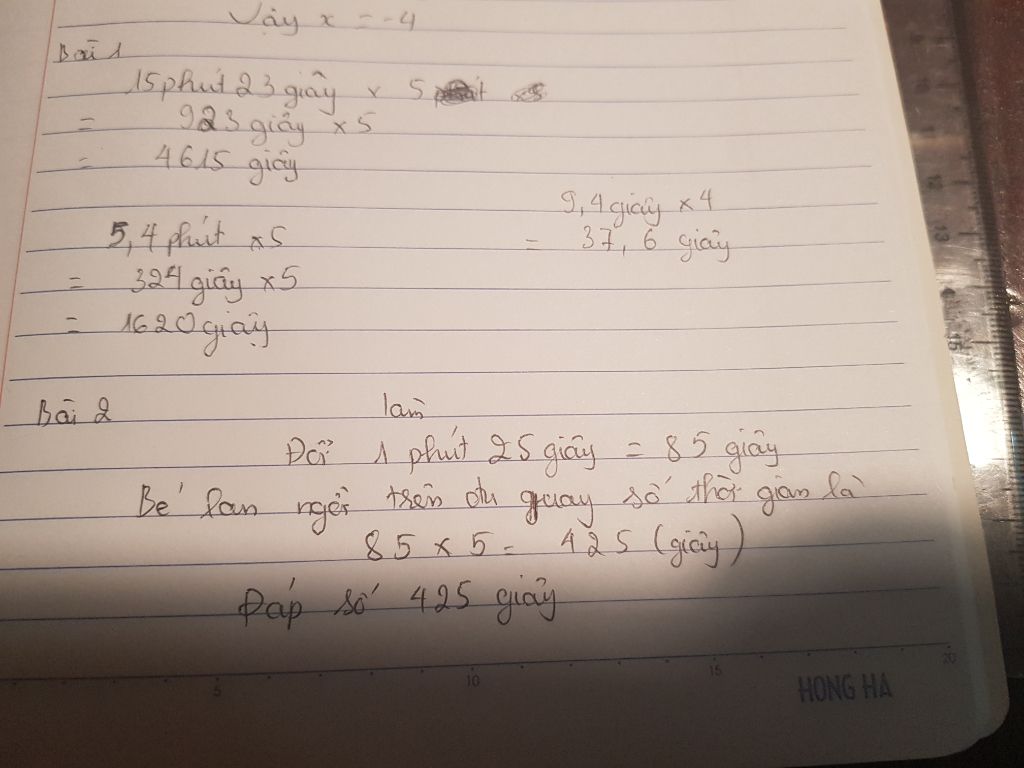 Vậy x = -4
Bài 1
15 phút 23 giây x 5
= 923 giây x 5
= 4615 giây
5,4 phút x 5
= 324 giây x 5
= 1620 giây
9,4 giây x 4
= 37,6 giây
Bài 2
làm
Đổi 1 phút 25 giây = 85 giây
Bé Lan ngồi trên đu quay số thời gian là
85 x 5 = 425 (giây)
Đáp số 425 giây
5 10 15 20
HONG HA
12
13
15